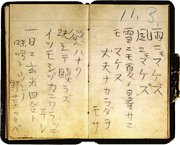 11.3.
雨ニモマケズ
風ニモマケズ
雪ニモ夏ノ暑サニモ
マケヌ
丈夫ナカラダヲ
モチ
慾ハナク
決シテ瞋ラズ
イツモシヅカニワラッテ
ヰル
一日ニ玄米四合ト
味噌ト少シノ
野菜ヲタベ